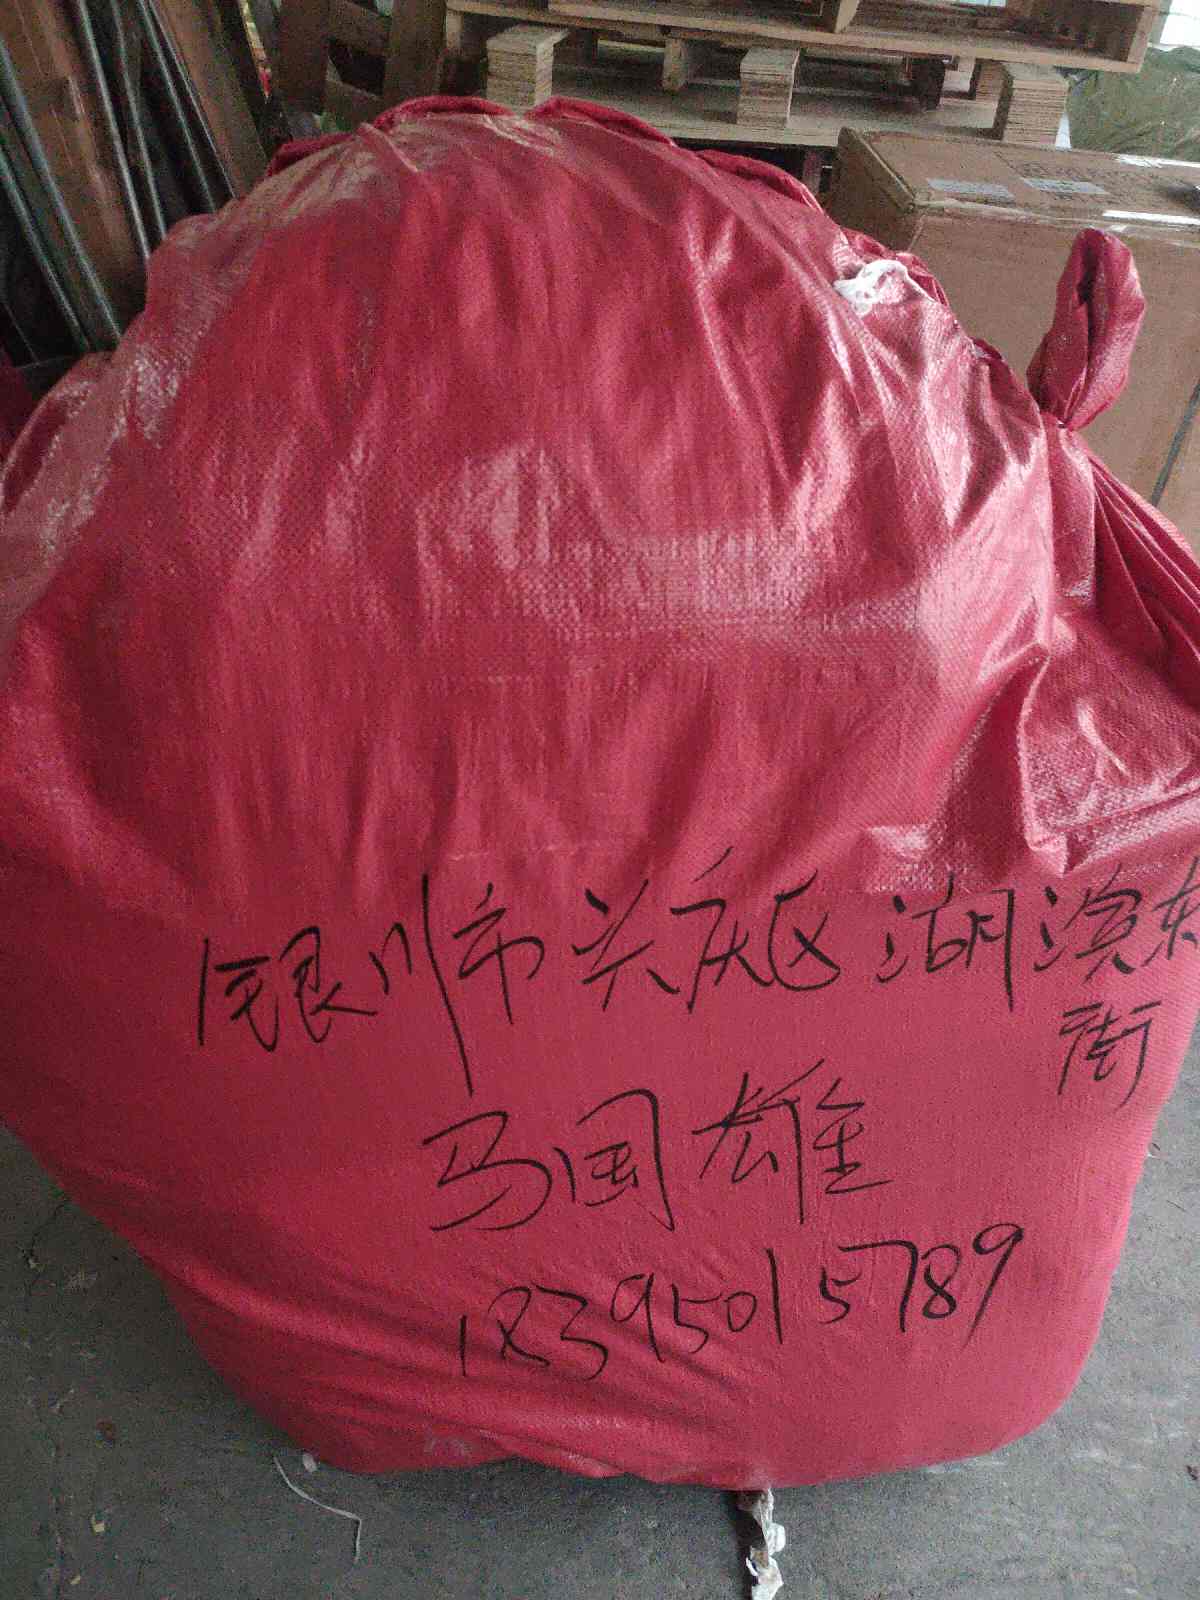 银川市兴庆区湖滨东
街
马国雄
18395015789